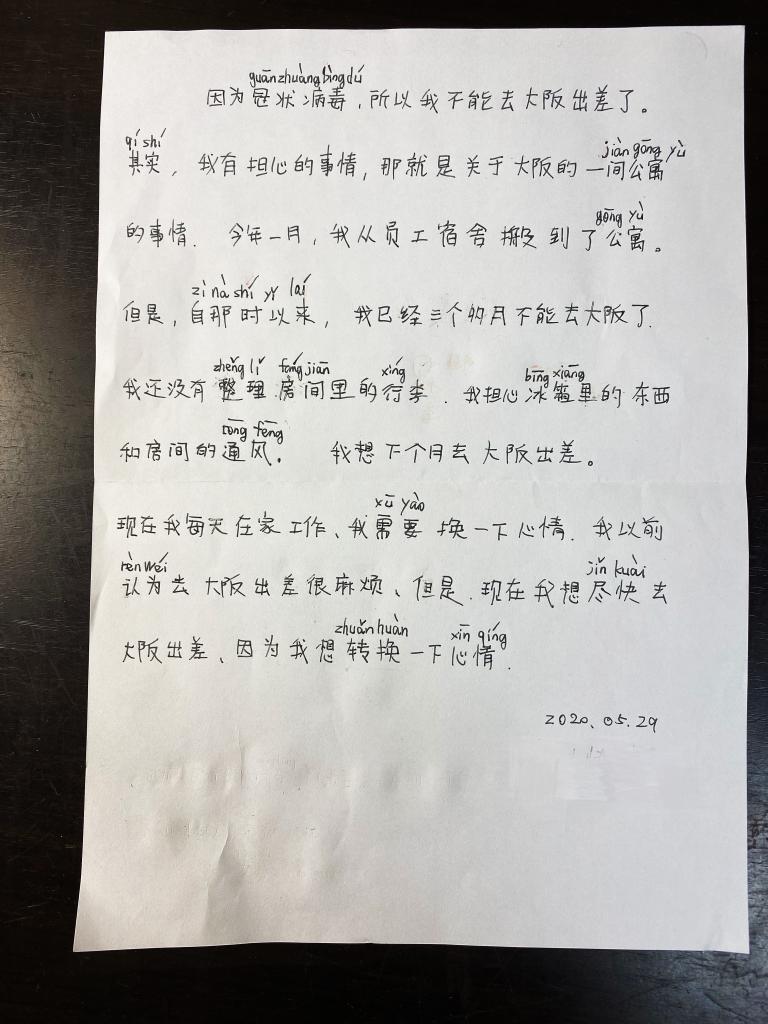 guānzhuàngbìngdú
因为冠状病毒，所以我不能去大阪出差了。
qí shí jiàn gōng yù
其实，我有担心的事情，那就是关于大阪的一间公寓
gōng yù
的事情. 今年一月，我从员工宿舍搬到了公寓。
zì nà shí yǐ lái
但是，自那时以来，我已经三个多月不能去大阪了.
zhěng lǐ fáng jiān xíng
我还没有整理房间里的行李. 我担心冰箱里的东西
bīng xiāng
tōng fēng
和房间的通风. 我想下个月去大阪出差。
xū yào
现在我每天在家工作、我需要换一下心情. 我以前
rèn wéi jǐn kuài
认为去大阪出差很麻烦、但是.现在我想尽快去
zhuǎn huàn xīn qíng
大阪出差、因为我想转换一下心情.
2020.05.29